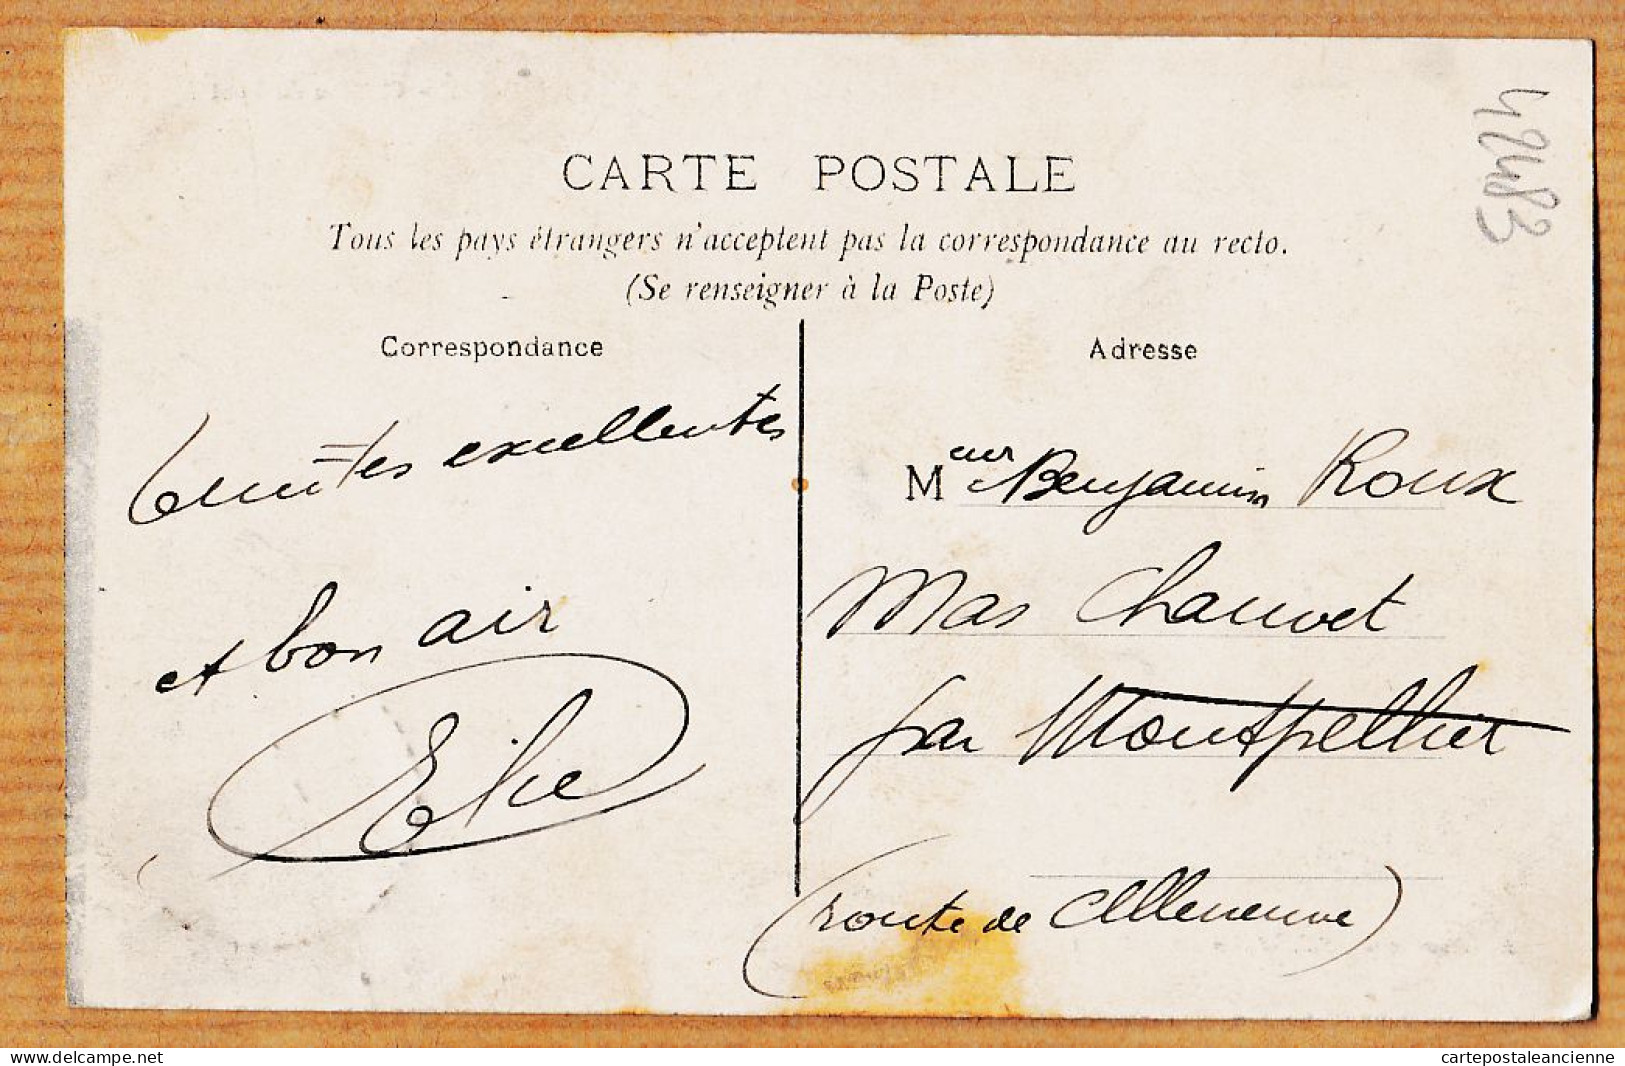 4283
CARTE POSTALE
Tous les pays étrangers n'acceptent pas la correspondance au recto.
(Se renseigner à la Poste)
Correspondance
excellentes
et bon air
Elie
Adresse
Meur Benjamin Roux
Mas Chauvet
par Montpellier
(route de Villeneuve)
delcampe.net
cartepostaleancienne